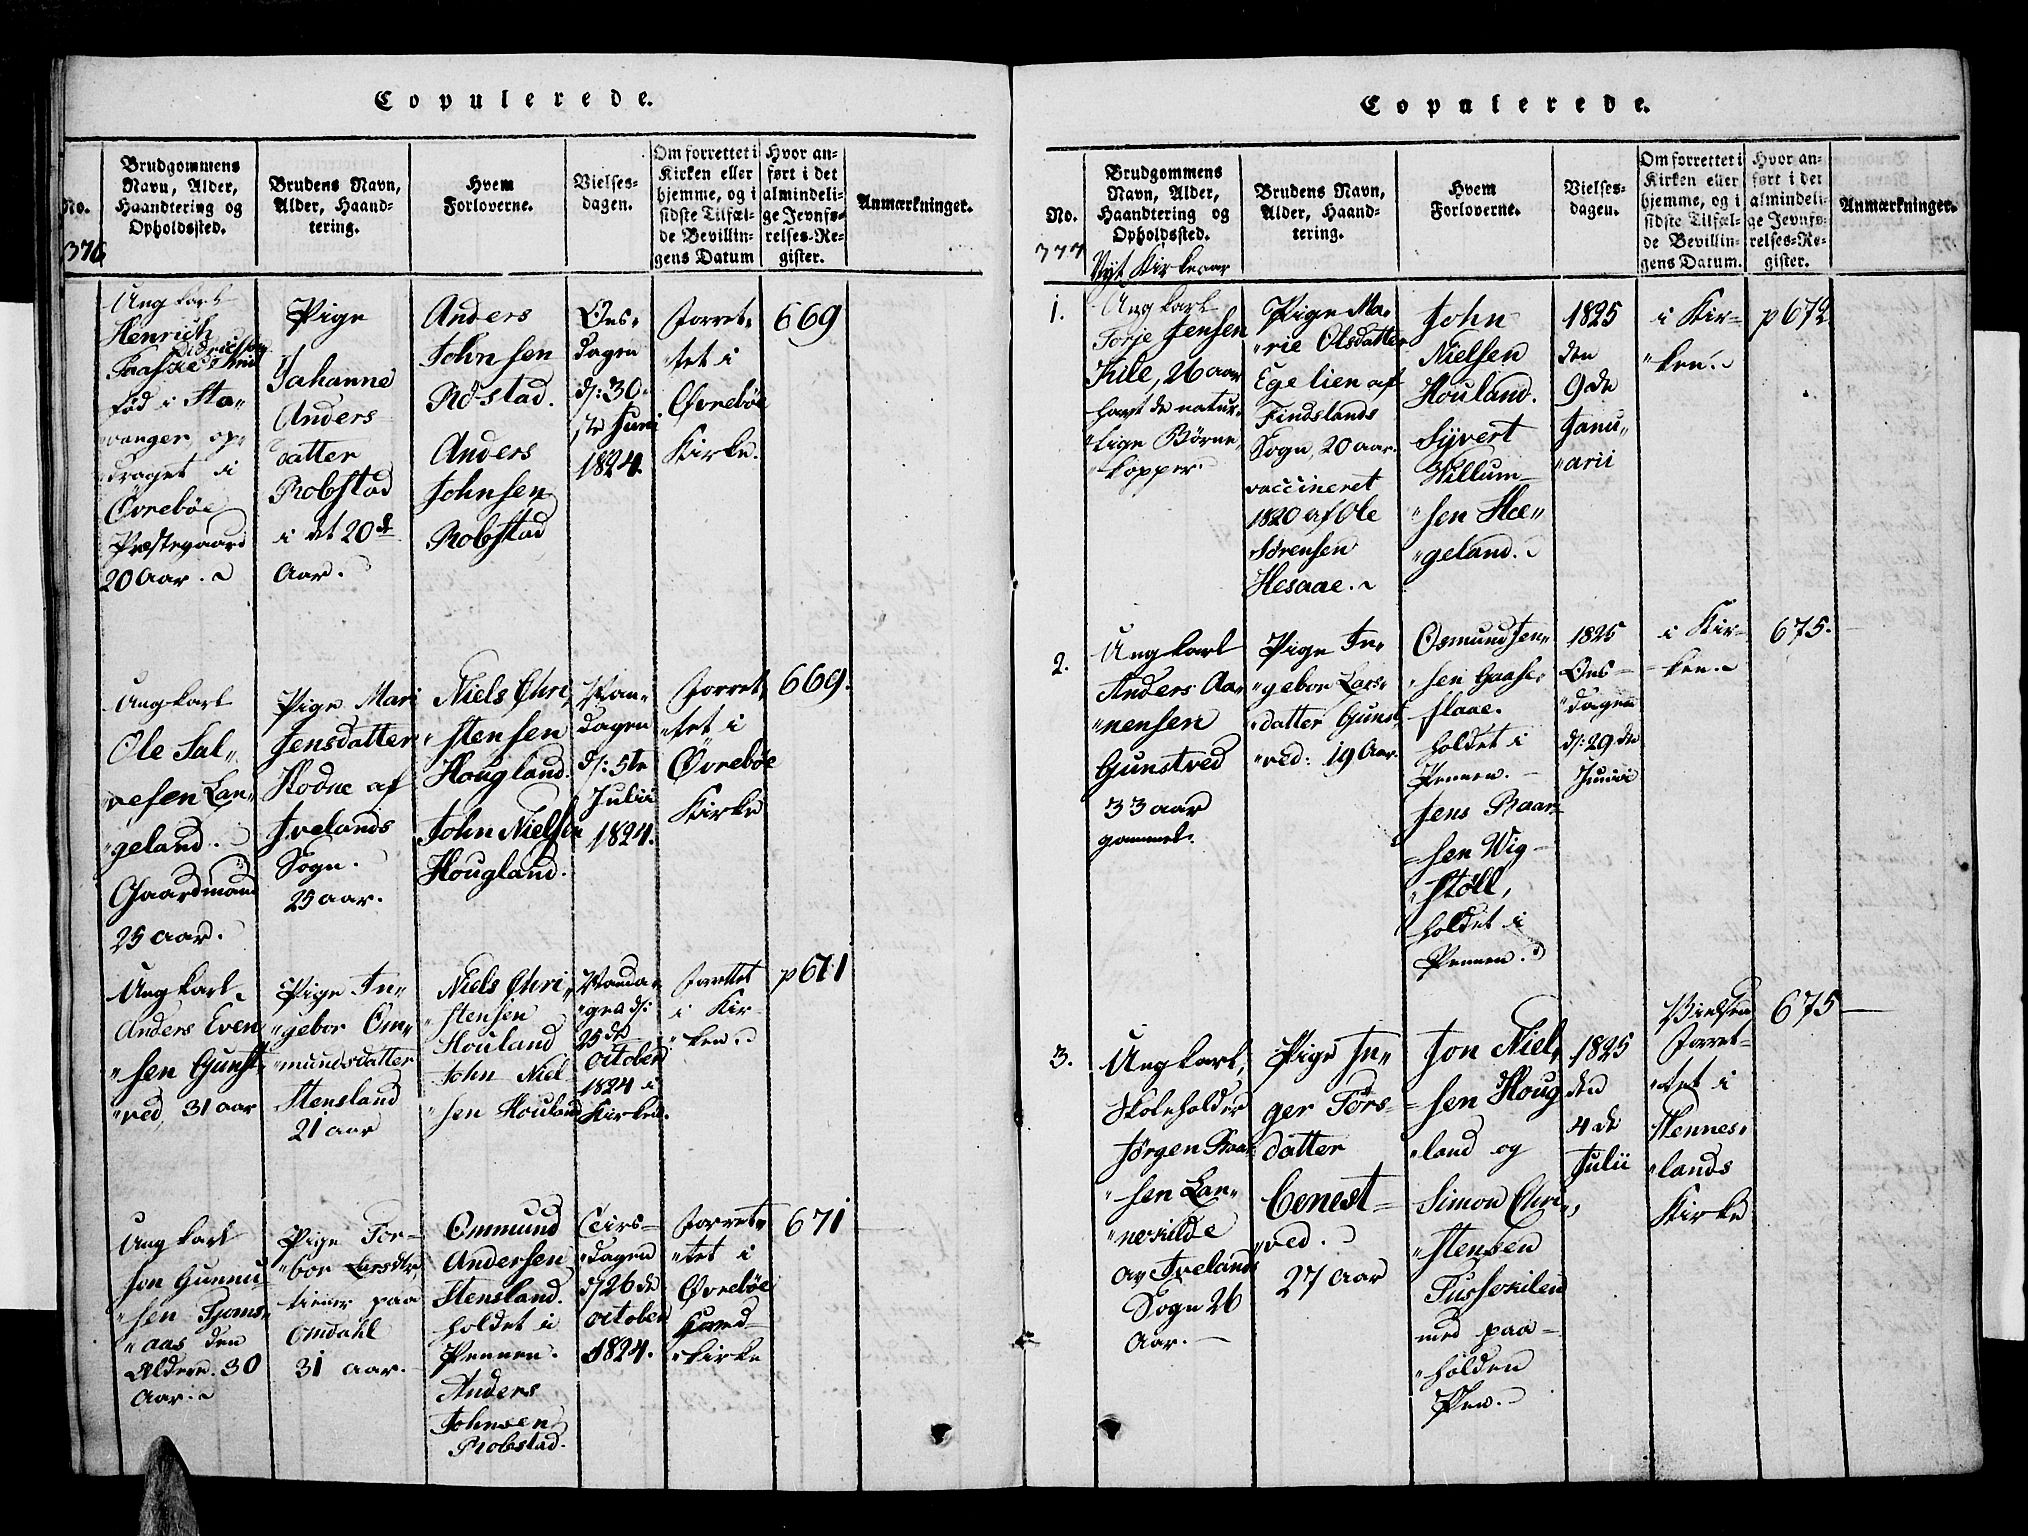 Copulerede.
No.
376
Brudgommens
Navn, Alder,
Haandtering og
Opholdssted.
Brudens Navn,
Alder, Haand-
tering.
Hvem
Forloverne.
Vielses-
dagen.
Om forrettet i
Kirken eller
hjemme, og i
sidste Tilfæl-
de Bevillin-
gens Datum
Hvor an-
ført i det
almindeli-
ge Jevnfø-
relses-Re-
gister.
Anmærkninger.
Ungkarl
Henrich
Didrichsen
fød i Sta-
vanger, op-
draget i
Øvrebøe
Præstegaard
20 Aar.
Pige
Johanne
Anders
datter
Robstad
i det 20de
Aar.
Anders
Johnsen
Robstad.
Anders
Johnsen
Robstad
Ons-
dagen
d: 30
te Juni
1824.
Forret-
tet i
Øvrebøe
Kirke.
669
Ungkarl
Ole Sal-
vesen Lan-
geland.
Gaardmand
25 aar.
Pige Mari
Jensdatter
Kodne af
Ivelands
Sogn.
25 aar.
Niels Chri
stensen
Hougland.
John Nielsen
Hougland.
Man-
dagen
d: 5te
Julii
1824.
Forret-
tet i
Øvrebøe
Kirke
669.
Ungkarl
Anders Even
sen Gunst
ved, 31 aar
Pige In-
gebor Om-
mundsdatter
Stensland
21 aar
Niels Chri-
stensen
Houland
John Niel
sen Houland
Manda-
gen d:
25de
October
1824 i
Kirken.
Forettet
i Kir-
ken.
p 671
Ungkarl
Jon Gunnu
sen Tjoms-
aas den
Aldere. 30
Aar.
Pige Tor-
bor Larsdtr.
tiener paa
Omdahl
31 aar.
Ommund
Andersen
Stensland.
holdet i
Pennen.
Anders
Johnsen
Robstad.
Tirs-
dagen
d/26de
October
1824.
Forret-
tet i
Øvrebøe
Hoved-
kirke
671
Copulerede.
No.
377
Brudgommens
Navn, Alder,
Haandtering og
Opholdssted.
Nyt Kirkeaar
Brudens Navn,
Alder, Haand-
tering.
Hvem
Forloverne.
Vielses-
dagen.
Om forrettet i
Kirken eller
hjemme, og i
sidste Tilfæl-
de Bevillin-
gens Datum.
Hvor an-
ført i det
almindeli-
ge Jevnfø-
relses-Re-
gister.
Anmærkninger.
1.
Ungkarl
Torje Jensen
Kile, 26 aar
havt de natur-
lige Børne
kopper.
Pige Ma-
rie Olsdatter
Egelien af
Findslands
Sogn, 20 aar.
vaccineret
1820 af Ole
Sørensen
Hesaae.
John
Nielsen
Houland.
Syvert
Willum-
sen Hæ-
geland.
1825
den
9de
Janu-
arii
i Kir-
ken.
p 672
2.
Ungkarl
Anders Aa-
nensen
Gunstved
33 aar
gammel.
Pige In-
gebor Lars-
datter Gunst
ved: 19 Aar.
Osmund Jen-
sen Gaase-
flaae.
holdet i
Pennen.
Jens Roar
sen Wig-
støll,
holdet i
Pennen.
1825
Ons-
dagen
d: 29de
Junii
i Kir-
ken.
675.
3.
Ungkarl,
Skoleholder
Jørgen Roar
sen Lan-
nekilde
av Ivelands
Sogn 26
Aar.
Pige In-
ger Tørs-
datter
Cenest-
ved.
27 aar
Jon Niel-
sen Houg
land og
Simon Chri-
stensen
Fussekilen
med paa-
holden
Pen.
1825
den
4de
Julii
Vielsen
Forret-
tet i
Hennes-
lands
Kirke
675